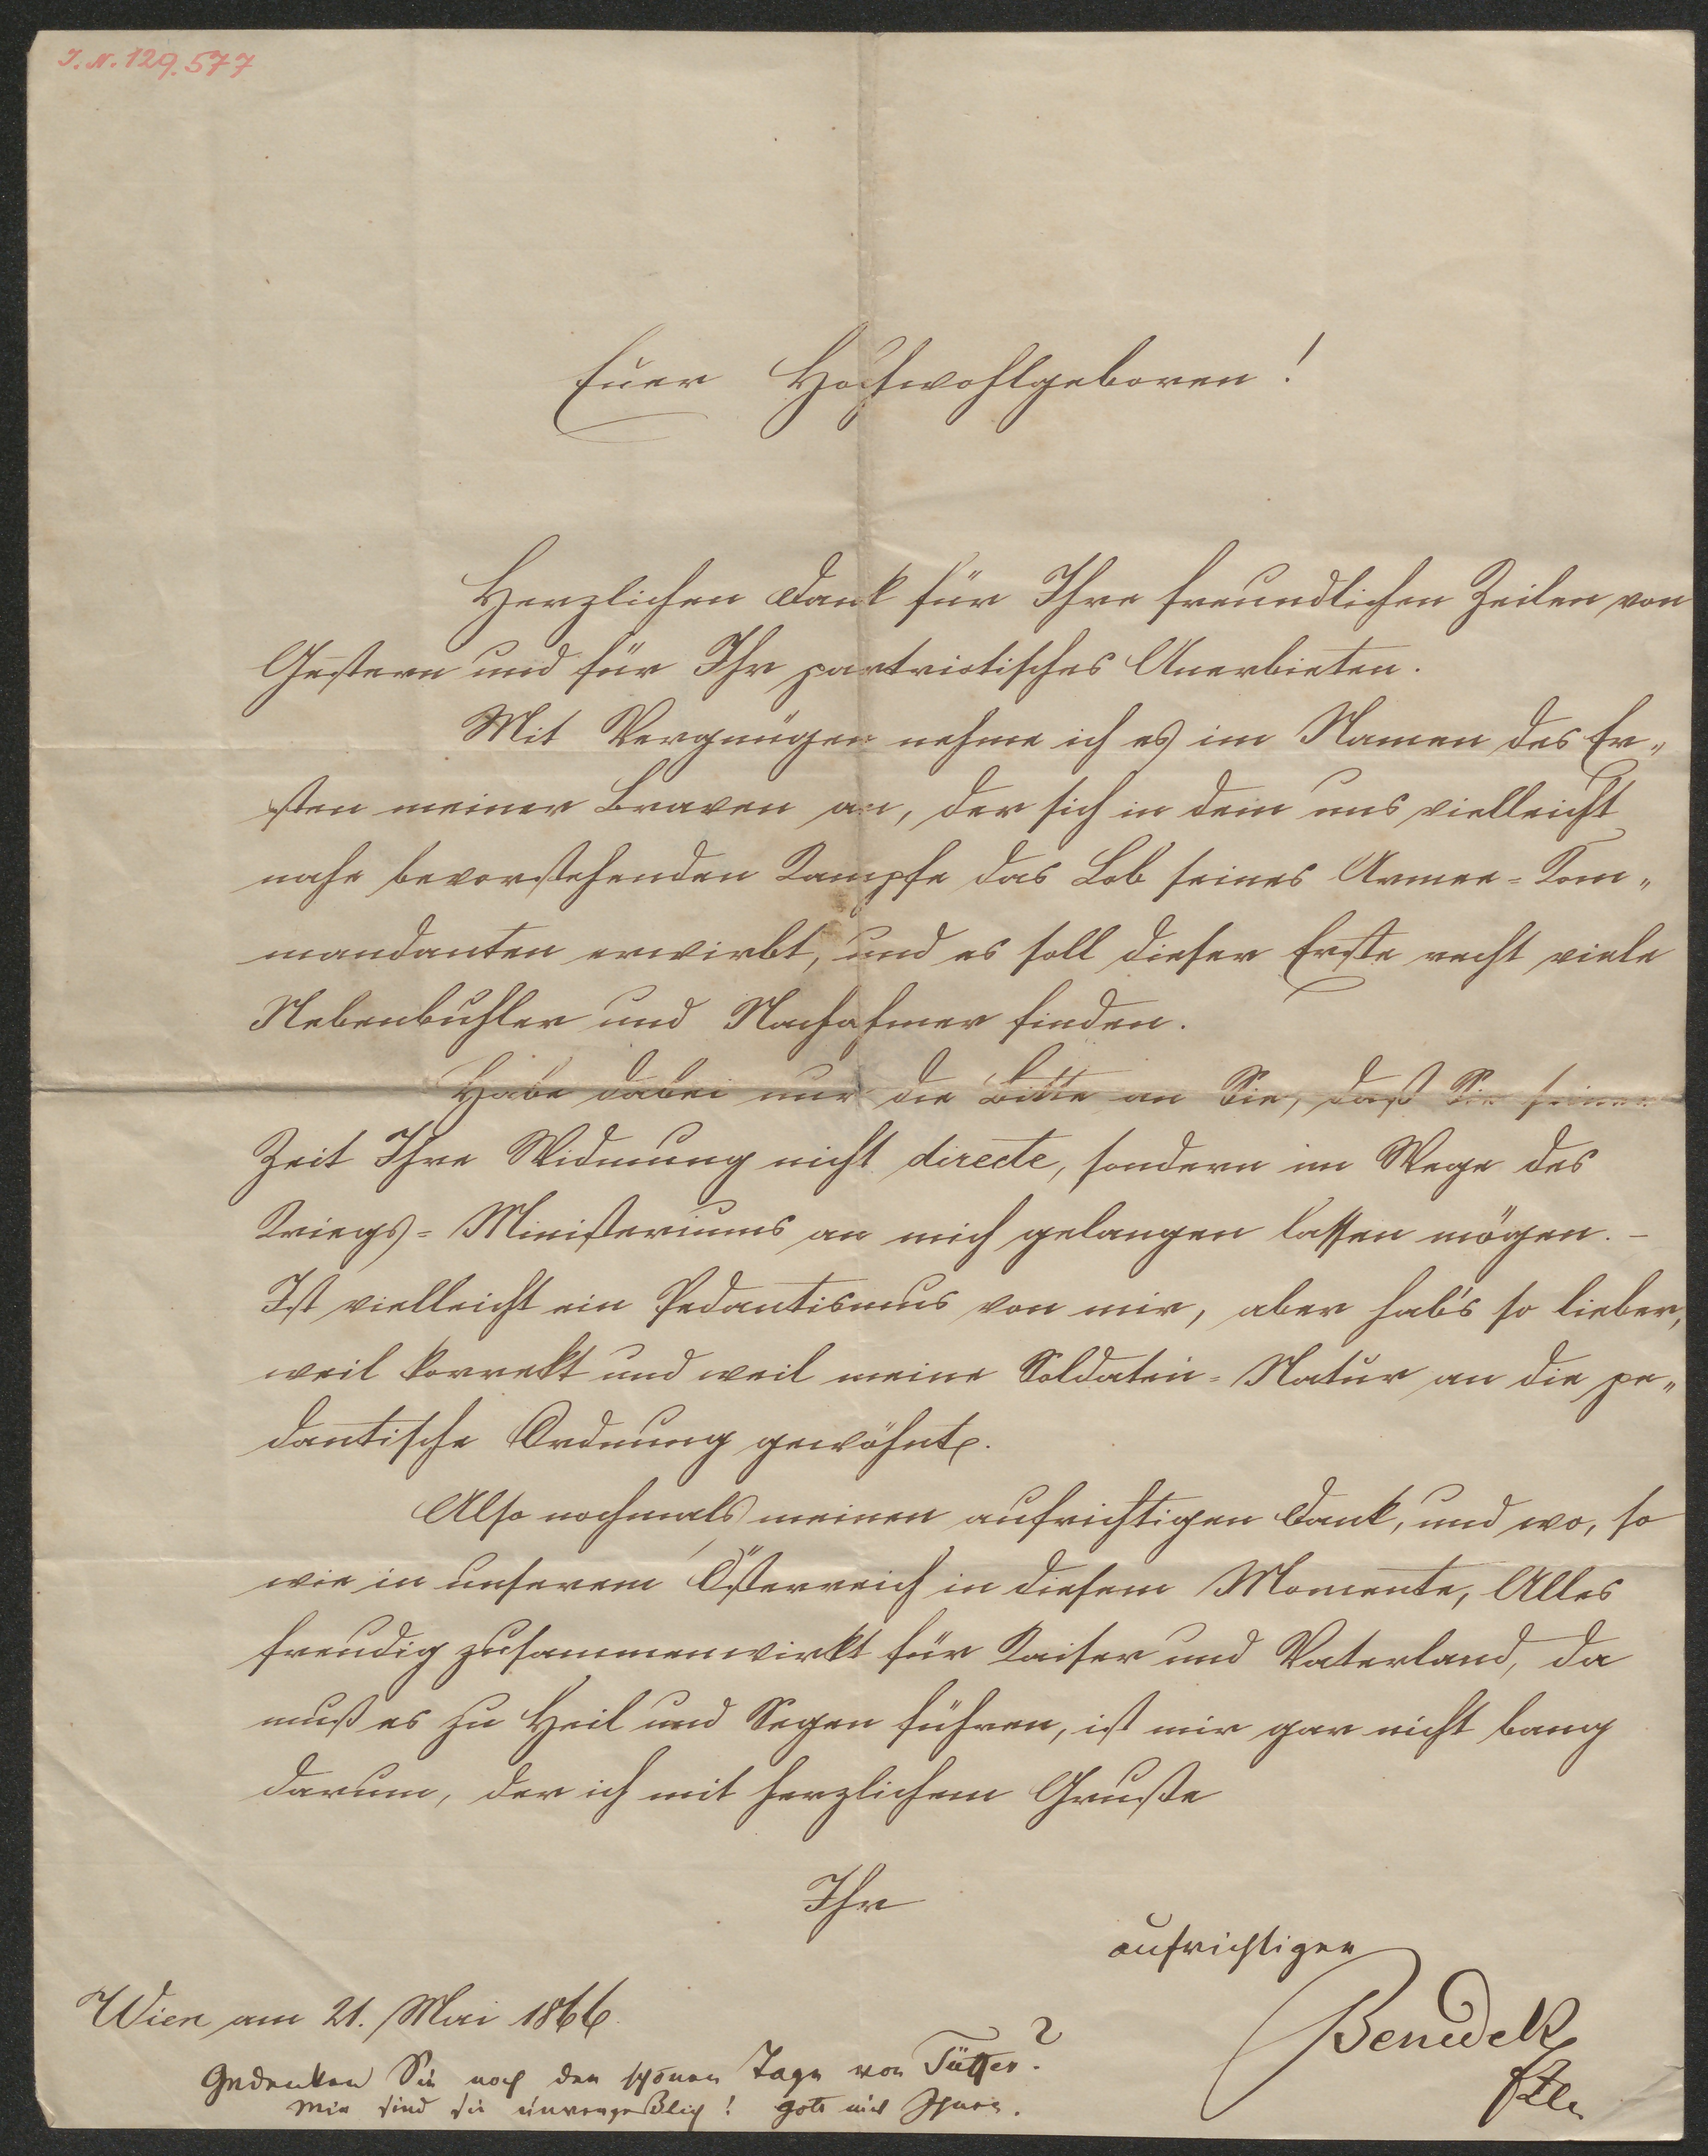 I. N. 129.577
Euer Hochwohlgeboren!
Herzlichen Dank für Ihre freundlichen Zeilen von
Gestern und für Ihr partriotisches Anerbieten.
Mit Vergnügen nehme ich es im Namen des Er„
sten meiner Braven an, der sich in dem uns vielleicht
nahe bevorstehenden Kampfe das Lob seines Armee=Kom„
mandanten erwirbt, und es soll dieser Erste recht viele
Nebenbuhler und Nachahmer finden.
Habe dabei nur die Bitte an Sie, daß Sie seiner
Zeit Ihre Widmung nicht directe, sondern im Wege des
Kriegs=Ministeriums an mich gelangen lassen mögen. –
Ist vielleicht ein Pedantismus von mir, aber hab's so lieber,
weil korrekt und weil meine Soldaten=Natur an die pe„
dantische Ordnung gewöhnt.
Also nochmals meinen aufrichtigen Dank, und wo, so
wie in unserem Österreich in diesem Momente, Alles
freudig zusammenwirkt für Kaiser und Vaterland, da
muß es zu Heil und Segen führen, ist mir gar nicht bang
darum, der ich mit herzlichem Gruße
Ihr
aufrichtigen
Benedek
FZM
Wien am 21. Mai 1866.
Gedenken Sie noch der schönen Tage von Tüffer?
Mir sind sie unvergeßlich! Gott mit Ihnen.